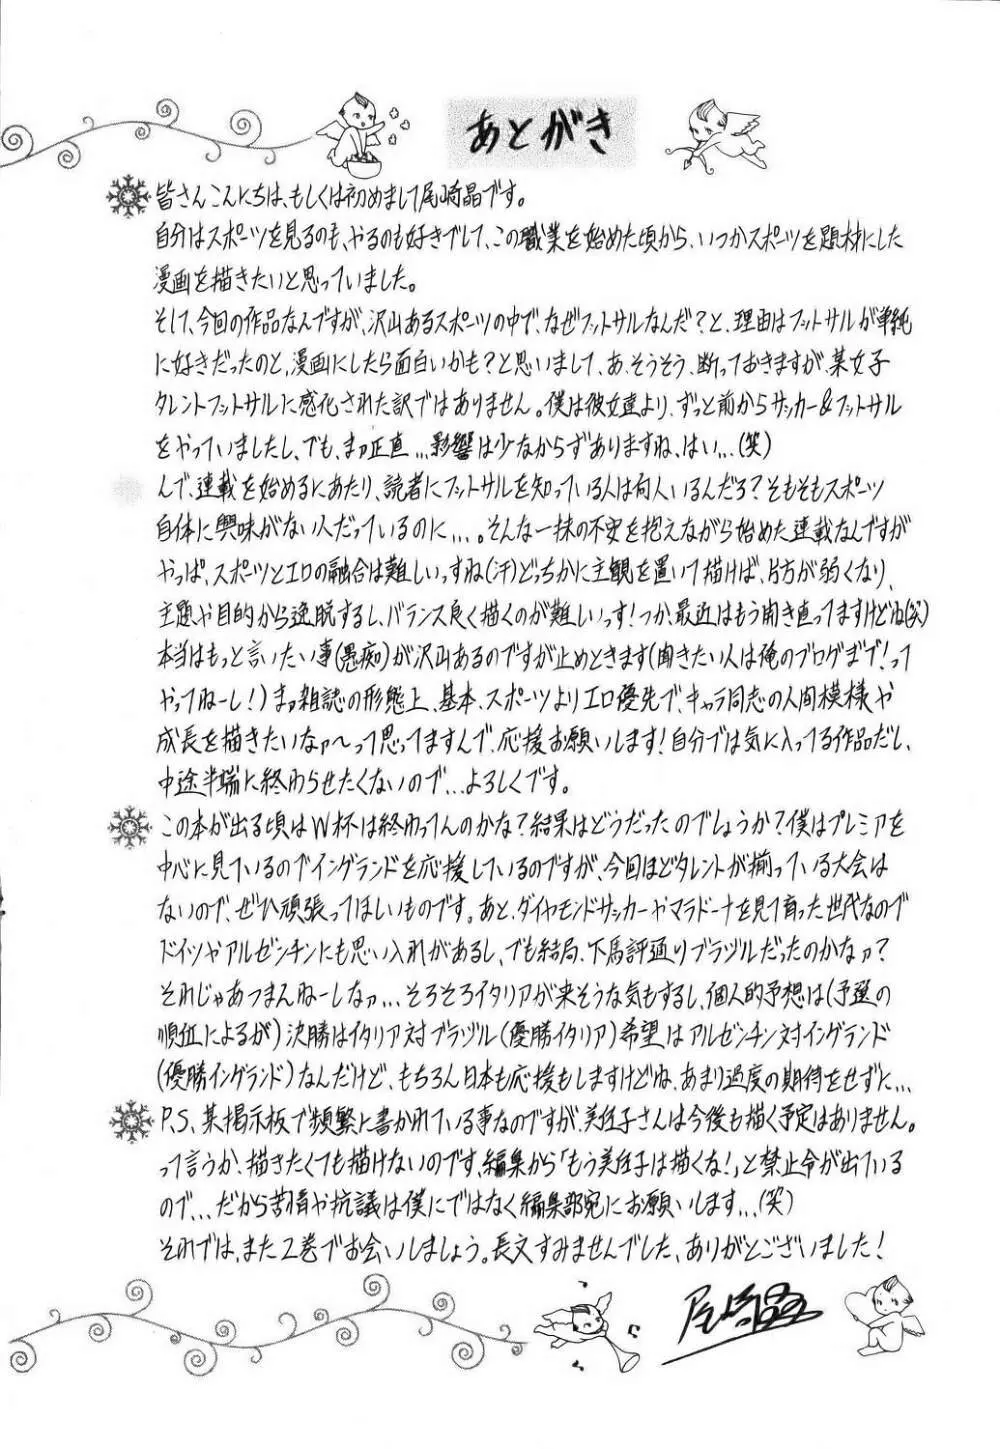 あとがき
皆さんこんにちは、もしくは初めまして尾崎晶です。
自分はスポーツを見るのも、やるのも好きでして、この職業を始めた頃から、いつかスポーツを題材にした
漫画を描きたいと思っていました。
そして、今回の作品なんですが、沢山あるスポーツの中で、なぜフットサルなんだ?と、理由はフットサルが単純
に好きだったのと、漫画にしたら面白いかも?と思いまして、あ、そうそう、断っておきますが、某女子
タレントフットサルに感化された訳ではありません。僕は彼女達より、ずっと前からサッカー&フットサル
をやっていましたし、でも、まァ正直...影響は少なからずありますね、はい...(笑)
んで、連載を始めるにあたり、読者にフットサルを知っている人は何人いるんだろ?そもそもスポーツ
自体に興味がない人だっているのに...。そんな一抹の不安を抱えながら始めた連載なんですが
やっぱ、スポーツとエロの融合は難しいっすね(汗)どっちかに主観を置いて描けば、片方が弱くなり、
主題や目的から逸脱するし、バランス良く描くのが難しいっす!つか、最近はもう開き直ってますけどね(笑)
本当はもっと言いたい事(愚痴)が沢山あるのですが止めときます(聞きたい人は俺のブログまで!って
やってねーし!)まァ雑誌の形態上、基本、スポーツよりエロ優先で、キャラ同志の人間模様や
成長を描きたいなァ〜って思ってますんで、応援お願いします!自分では気に入ってる作品だし、
中途半端に終わらせたくないので...よろしくです。
この本が出る頃はW杯は終わってんのかな?結果はどうだったのでしょうか?僕はプレミアを
中心に見ているのでイングランドを応援しているのですが、今回ほどタレントが揃っている大会は
ないので、ぜひ頑張ってほしいものです。あと、ダイヤモンドサッカーやマラドーナを見て育った世代なので
ドイツやアルゼンチンにも思い入れがあるし、でも結局、下馬評通りブラヅルだったのかなァ?
それじゃあつまんねーしなァ...そろそろイタリアが来そうな気もするし、個人的予想は(予選の
順位によるが)決勝はイタリア対ブラヅル(優勝イタリア)希望はアルゼンチン対イングランド
(優勝イングランド)なんだけど、もちろん日本も応援もしますけどね、あまり過度の期待をせずに...
P.S、某掲示板で頻繁に書かれている事なのですが、美佳子さんは今後も描く予定はありません。
って言うか、描きたくても描けないのです、編集から「もう美佳子は描くな!」と禁止令が出ている
ので...だから苦情や抗議は僕にではなく編集部宛にお願いします...(笑)
それでは、また2巻でお会いしましょう。長文すみませんでした、ありがとうございました!
尾崎晶